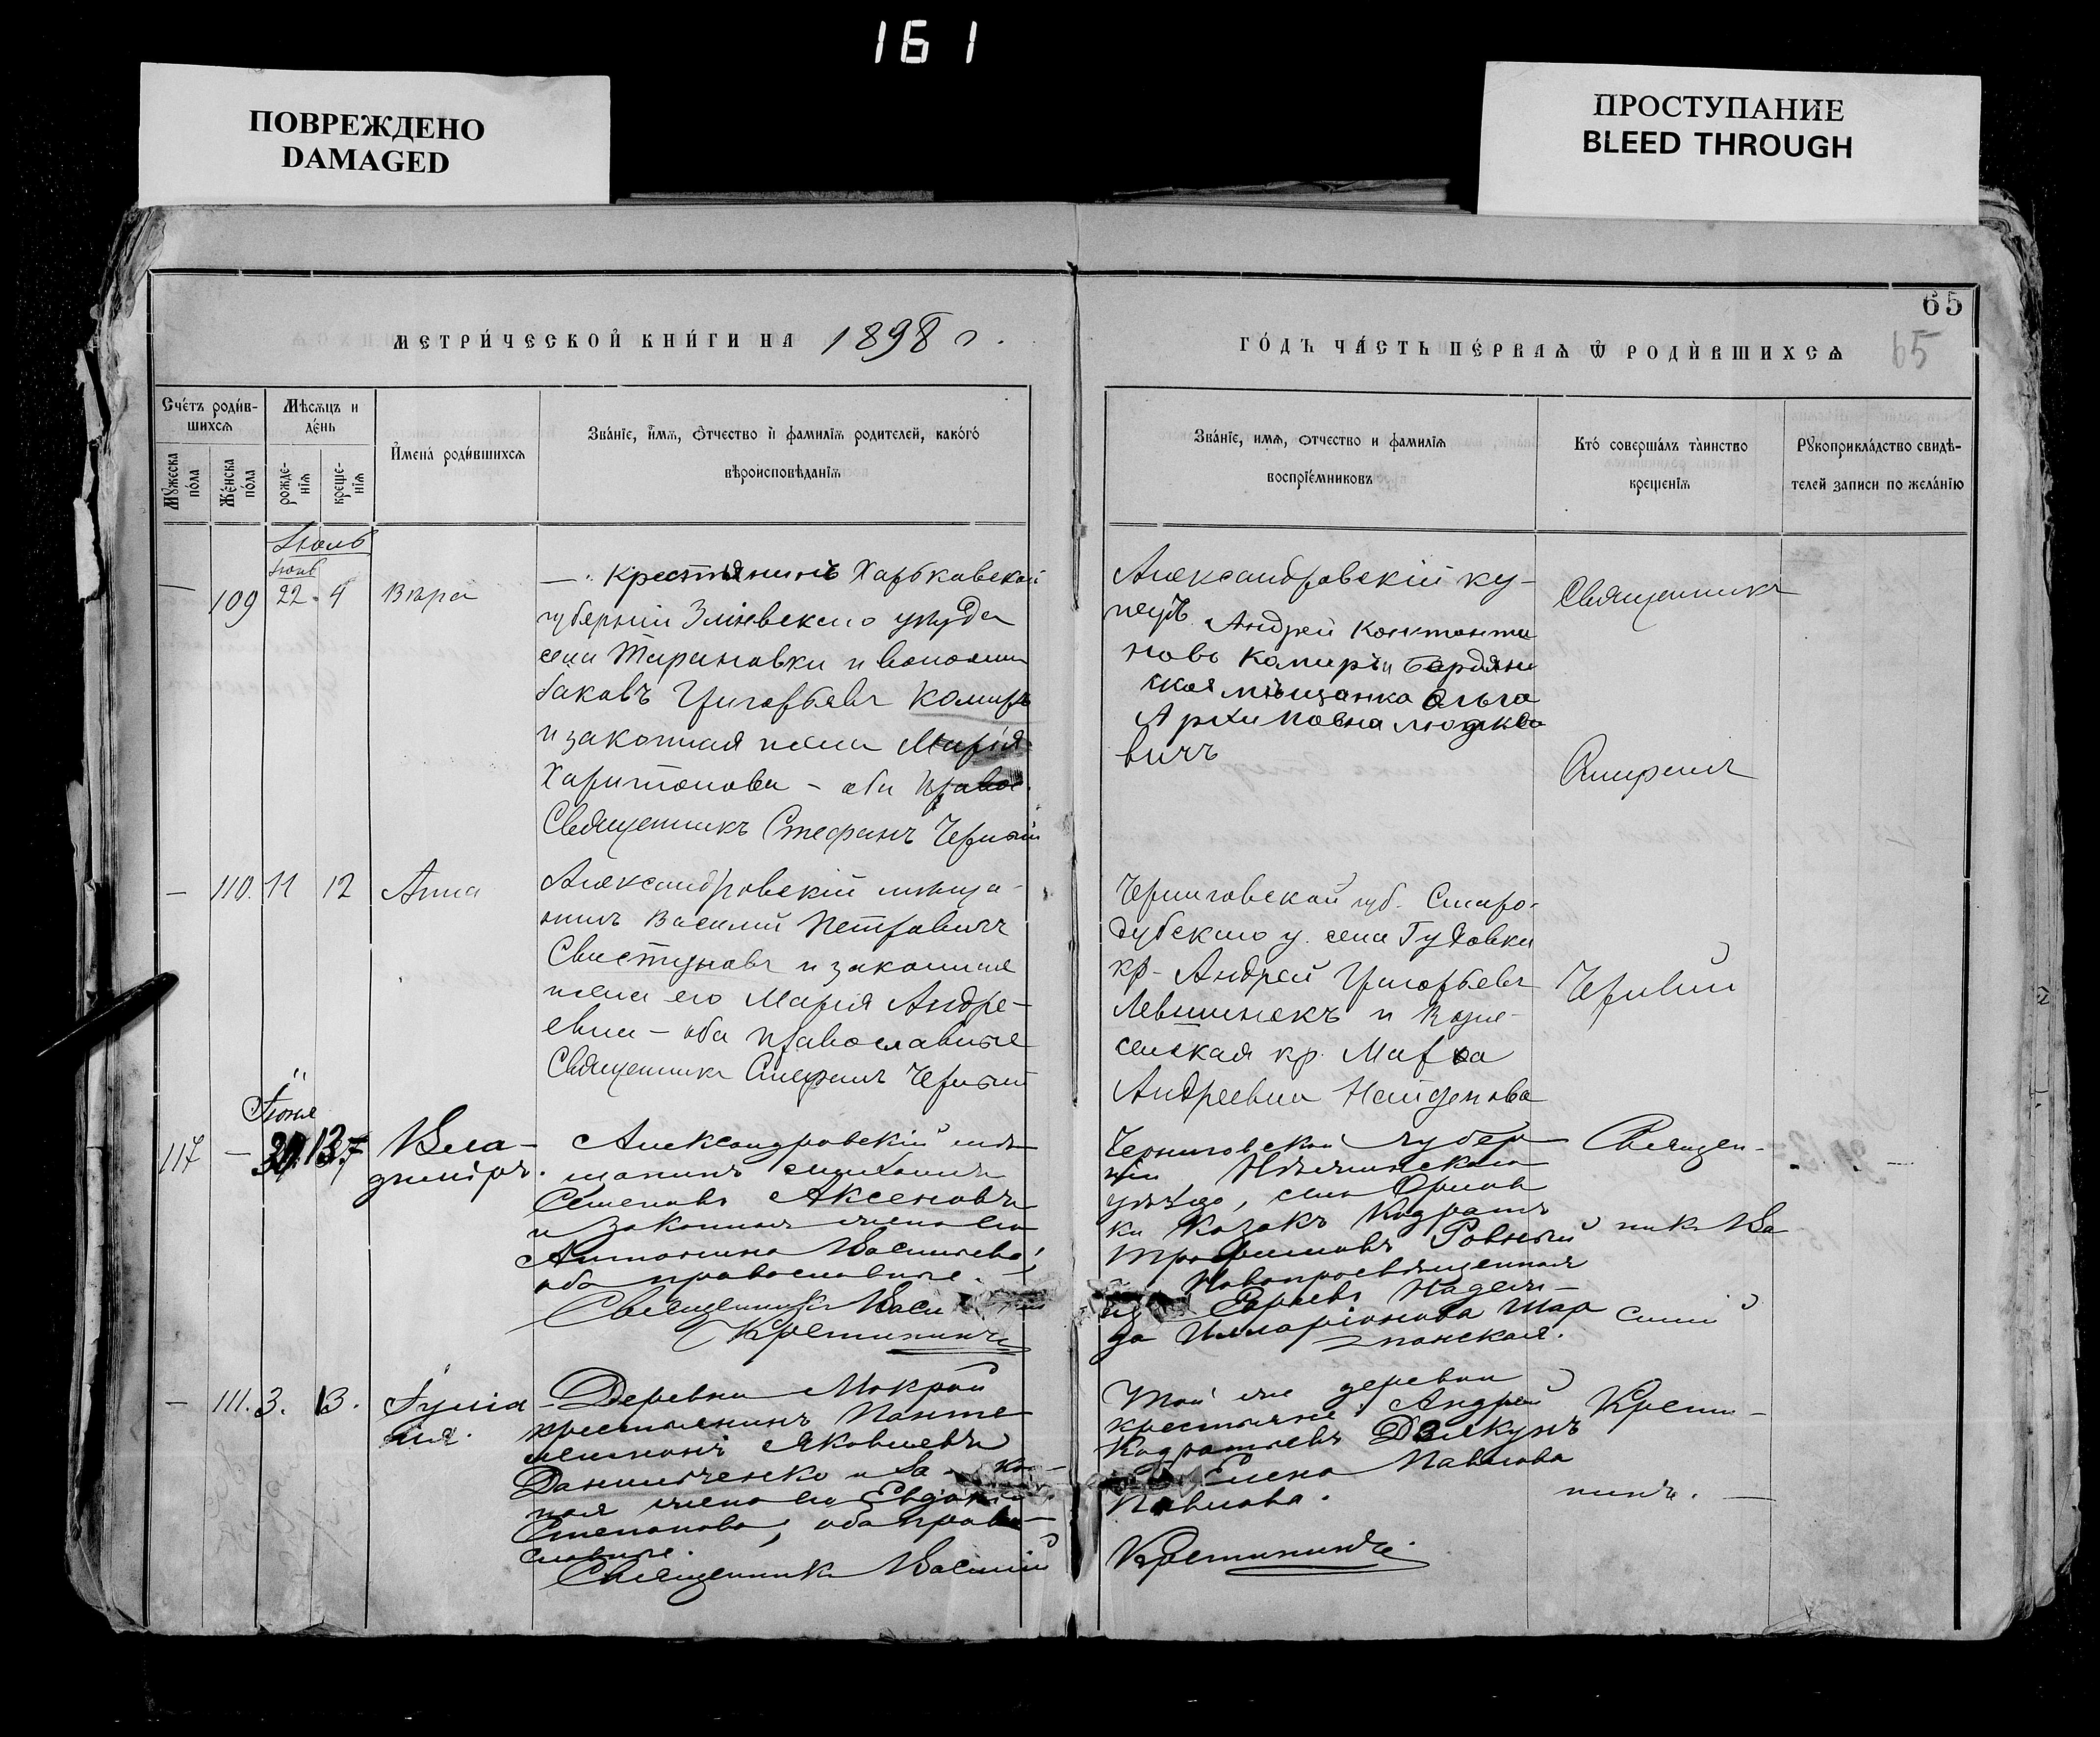 161
ПОВРЕЖДЕНО
DAMAGED
ПРОСТУПАНИЕ
BLEED THROUGH
65
МЕТРИ́ЧЕСКОЙ КНИ́ГИ НА 1898 г.
ГО́ДЪ ЧА́СТЬ ПЕ́РВАѦ Ѿ РОДИ́ВШИХСѦ 65
Сче́тъ роди́в-
шихсѧ
Мꙋ́жеска по́ла
Же́нска по́ла
Мѣ́сѧцъ и
де́нь
рожде-
нїѧ
креще-
нїѧ
И҆мена́ роди́вшихсѧ
Зва́нїе, и҆́мѧ, ѻ҆́тчество и҆ фамилїѧ родителей, како́гѡ
вѣроисповѣданїѧ
Зва́нїе, имѧ, ѻтчество и фамилїѧ
воспрїе́мниковъ
Кто̀ соверша́лъ та́инство
крещенїѧ
Рꙋкоприкла́дство свидѣ-
телей записи по жела́нїю
Іюль
Іюнь
— 109 22. 4 Вѣра
—. Крестьянинъ Харьковской
губерніи Зміевскаго уѣзда
села Тарановки и волости
Яковъ Григорьевъ Комиръ
и законная жена Марія
Харитонова – оба правос.
Священникъ Стефанъ Черный
Александровскій ку-
пецъ Андрей Константи
новъ Камиръ и Бердян
ская мѣщанка Ольга
Архиповна
вичъ
Священникъ
Стефанъ
— 110. 11 12 Анна
Александровскій мѣща-
нинъ Василій Петровичъ
Свистуновъ и законная
жена его Марія Андре-
евна – оба православные
Священникъ Стефанъ Черный
Черниговской губ. Старо-
дубскаго у. села Гудовки
кр. Андрей Григорьевъ
Левшинокъ и Возне-
сенская кр. Марѳа
Андреевна Найденова
Черный
Іюнь
117 — 30 7 Вла-
диміръ.
Александровскій мѣ-
щанинъ Михаилъ
Семеновъ Аксеновъ
и законная жена его
Антонина Васильева,
оба православные. —
Священникъ Васи
Крещининъ
Черниговской губер
ніи Нѣжинскаго
уѣзда, села
ки Козакъ Кодратъ
Трофимовъ Ровный
Новопросвященная
Надеж-
да Илларіонова Шар
панская.
Священ-
никъ Ва
силій
— 111. 3. 13. Іуліа
нія.
Деревни Мокрой
крестьянинъ Панте
леимонъ Яковлевъ
Данильченко и За кон-
ная жена его Евдокія
Степанова, оба право-
славные.
Священникъ Василій
Той же деревни
крестьяне: Андрей
Кодратьевъ
Елена Павлова
Павлова.
Крещининъ.
Крещи-
нинъ. —